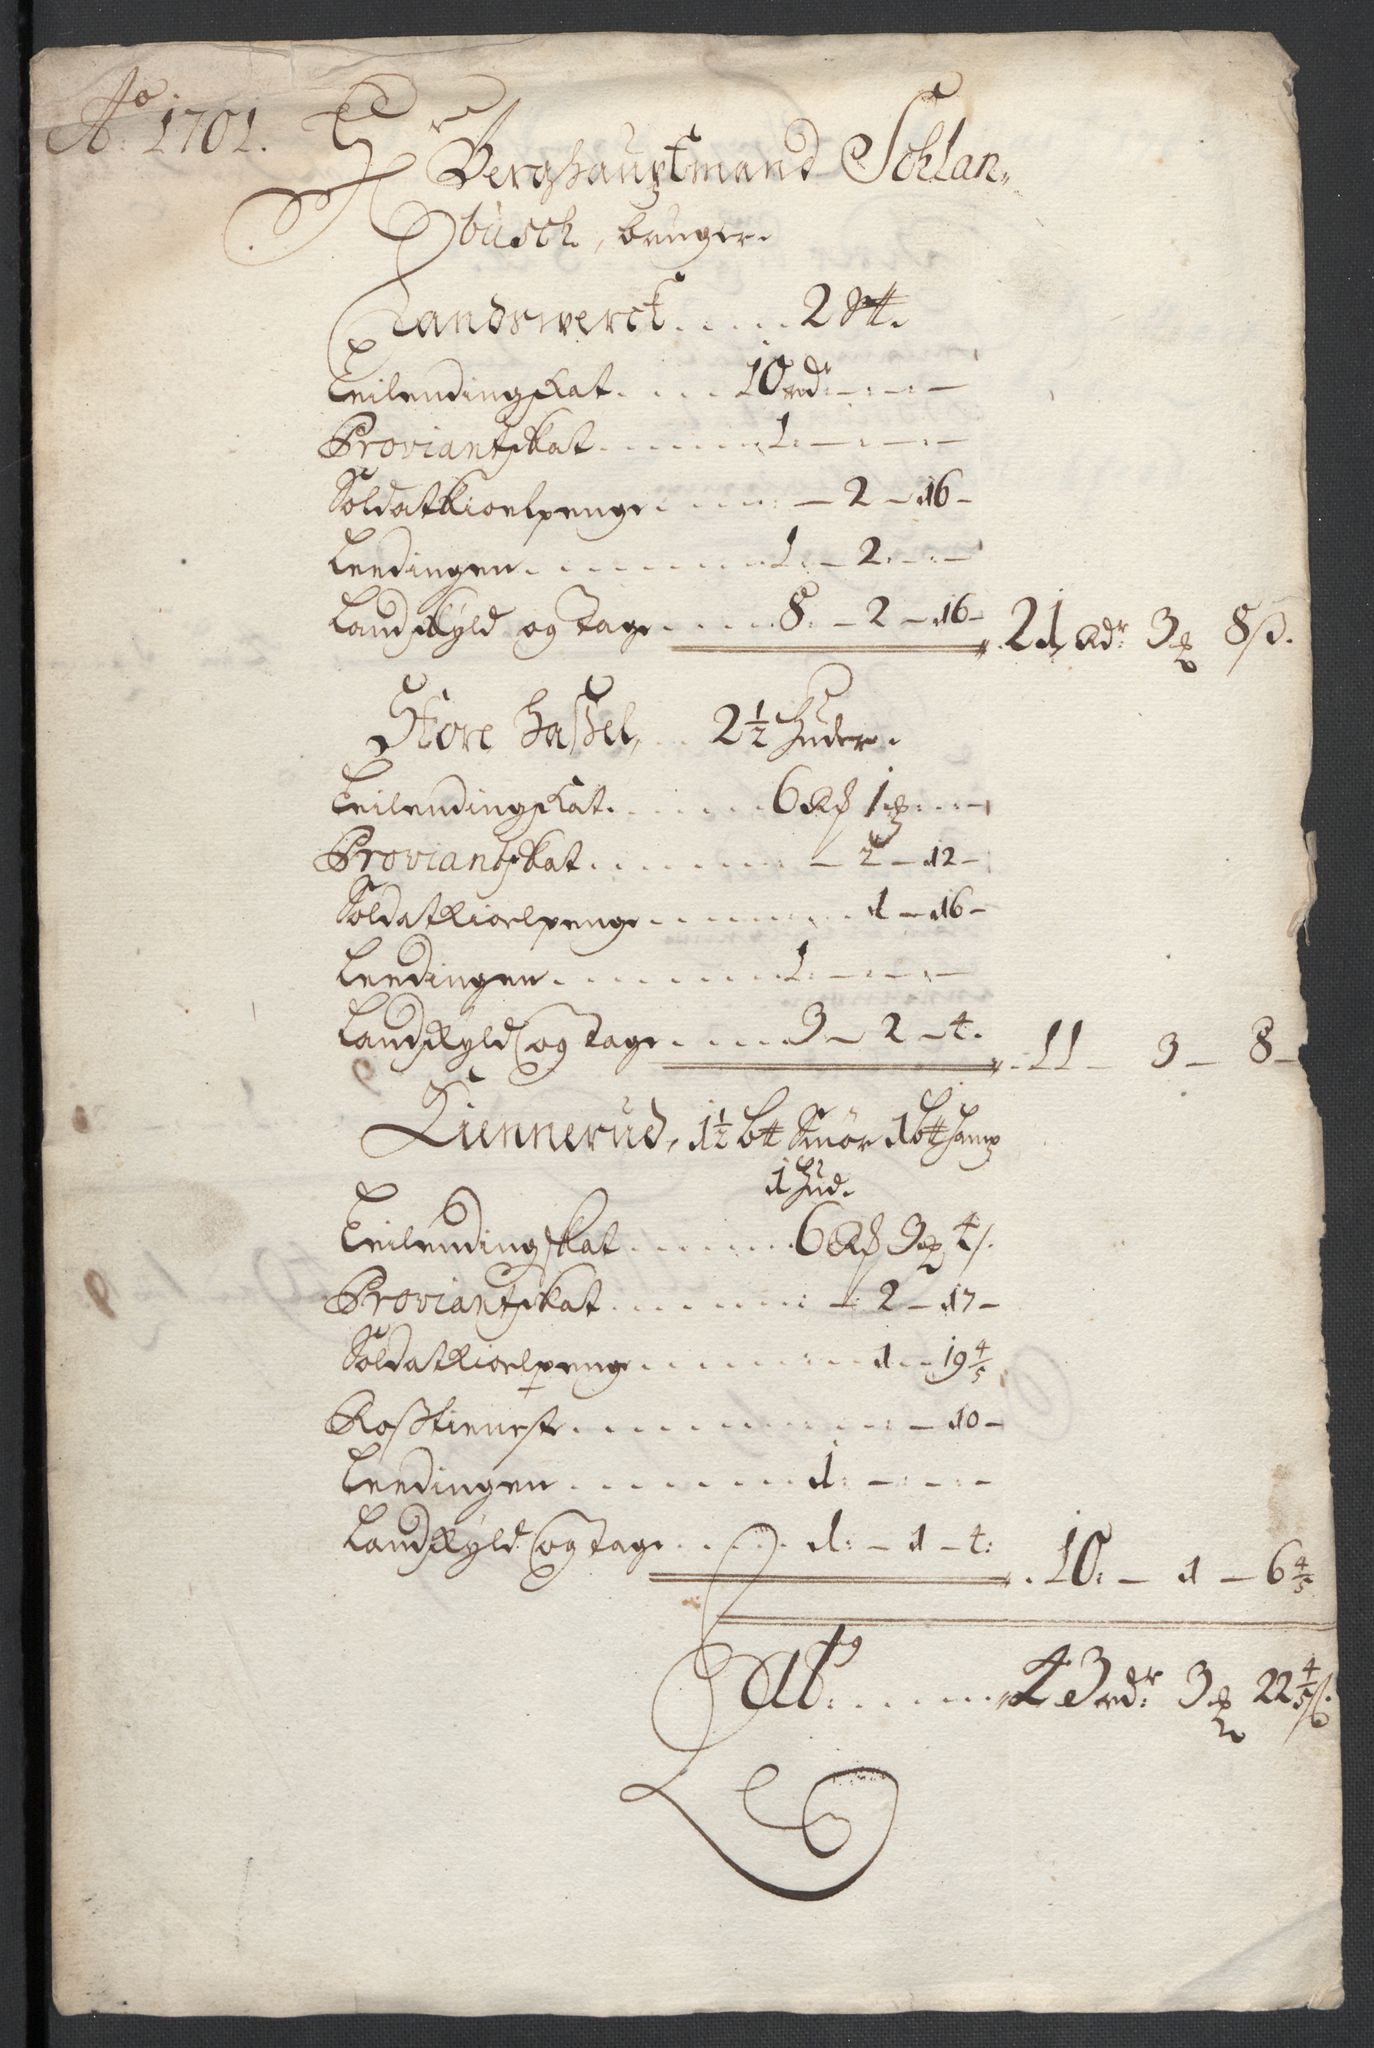 Ao 1701.
Hr Berghauptmand Schlan-
busch, bruger.
Landswerck ..... 2 Stk.
Leilendingskat ..... 10 rdr — : —
Proviantskat ....... 1 : — : —
Soldatkioelpenge ..... — 2 — 16 —
Leedingen ......... 1 : — 2 : —
Landskyld og Tage ..... 8 : — 2 — 16 — 21 Rdr: 3 8 s.
Store Hassel, ... 2½ Huder.
Leilendingskat ...... 6 Rd 1 : —
Proviantskat ........ — 2 — 12 —
Soldatkioelpenge ........ 1 — 16 —
Leedingen ......... 1 : — : —
Landskyld og Tage ..... 3 — 2 — 4. 11 — 3 — 8 —
Kiennerud, 1½ btt Smör 1 btt hamp
1 Hud.
Leilendingskat ....... 6 Rd 3 4 s.
Proviantskat ......... — 2 — 17 —
Soldatkioelpenge ........ 1 — 19 4/5
Rosstieneste ........ — 10 —
Leedingen ........ 1 : — : —
Landskyld og Tage ...... 1 : — 1 — 4 : 10 : — 1 — 6 4/5
Lat ...... 43 rdr: 3 22 4/5 s.